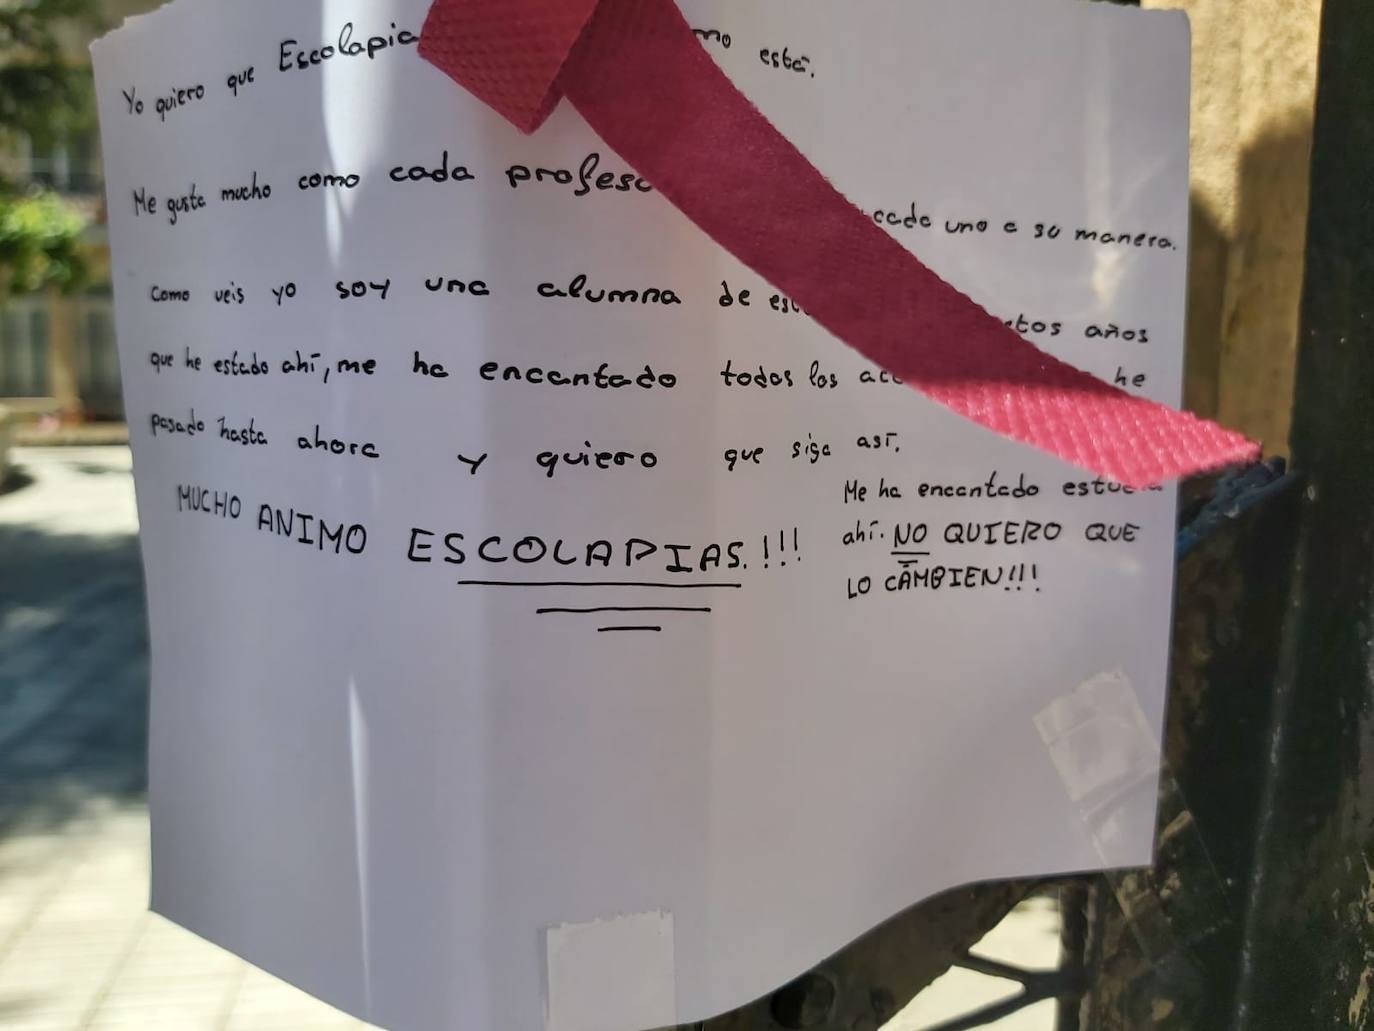 Yo quiero que Escolapia mo está.
Me gusta mucho como cada profeso cada uno a su manera.
Como veis yo soy una alumna de est tos años
que he estado ahí, me ha encantado todos los ac he
pasado hasta ahora y quiero que siga así.
MUCHO ANIMO ESCOLAPIAS.!!!
Me ha encantado estud
ahí. NO QUIERO QUE
LO CAMBIEN!!!